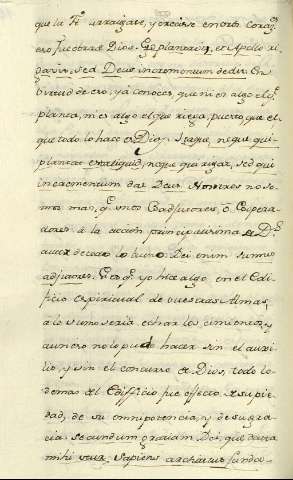 que la Fé arraigase, y creciese en otros Corazo
es, fue obra de Dios. Ego plantavi, et Apollo ri
gavit, sed Deus incrementum dedit. En
virtud de eso, yá conoces que ni es algo el q.
planta, ni es algo el que riega, puesto que el
que todo lo hace es Dios. Itaque, neque qui
plantat est aliquid, neque qui rigat, sed qui
incrementum dat Deus. Nosotros no so
mos mas, q. unos Coadjutores, ó Coopera
dores á la accion principalisima de D.
Dei enim sumus
adjutores. q. yo hice algo en el Edi
ficio espiritual de vuestras Almas,
a lo sumo seria echar los cimientos, y
aun eso no lo pude hacer sin el auxi
lio, y sin el concurso de Dios, todo lo
demas del Edificio fue efecto de su pie
dad, de su omnipotencia, y de su gra
cia. Secundum gratiam Dei, que data est
mihi, ut sapiens architectus funda-